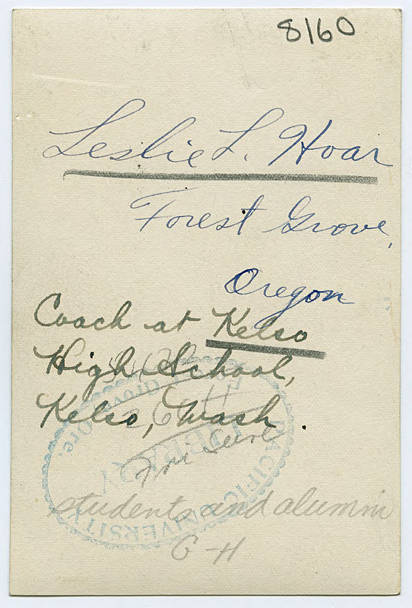 8160
Leslie L. Hoar
Forest Grove,
Oregon
Coach at Kelso
High School,
Kelso, Wash.
PACIFIC UNIVERSITY
LIBRARY
Forest Grove, Ore
students and alumni
G-H